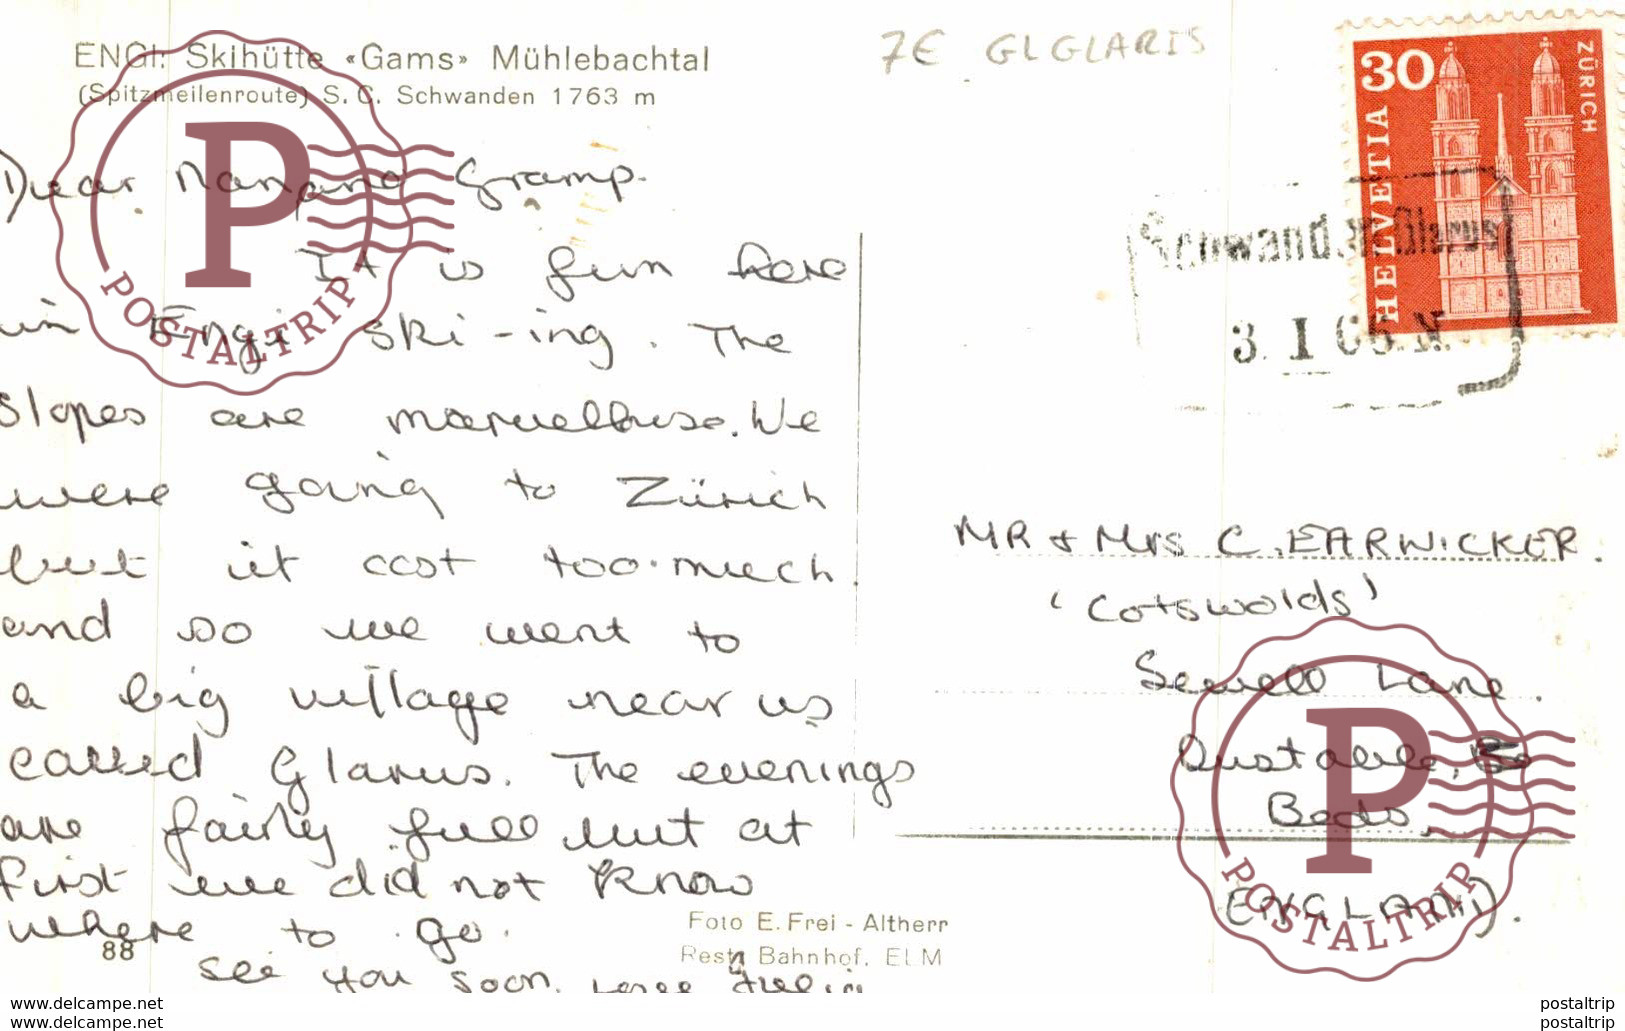 ENGI: Skihütte «Gams» Mühlebachtal
(Spitzmeilenroute) S. C. Schwanden 1763 m
7€ GLGLARIS
30
HELVETIA
ZÜRICH
Schwanden Glarus
3. I 65.
Dear Nan and Gramp.
It is fun here
in Engi ski-ing. The
slopes are marvellouse. We
were going to Zürich
but it cost too much.
and so we went to
a big village near us
called Glarus. The evenings
are fairly full but at
first we did not know
where to go.
see you soon.
MR & Mrs C. EARWICKER.
'Cotswolds'
Sewell Lane.
Dustable,
Beds.
ENGLAND.
88
Foto E. Frei - Altherr
Rest. Bahnhof, ELM
P
POSTALTRIP
P
POSTALTRIP
www.delcampe.net
postaltrip
www.delcampe.net
postaltrip